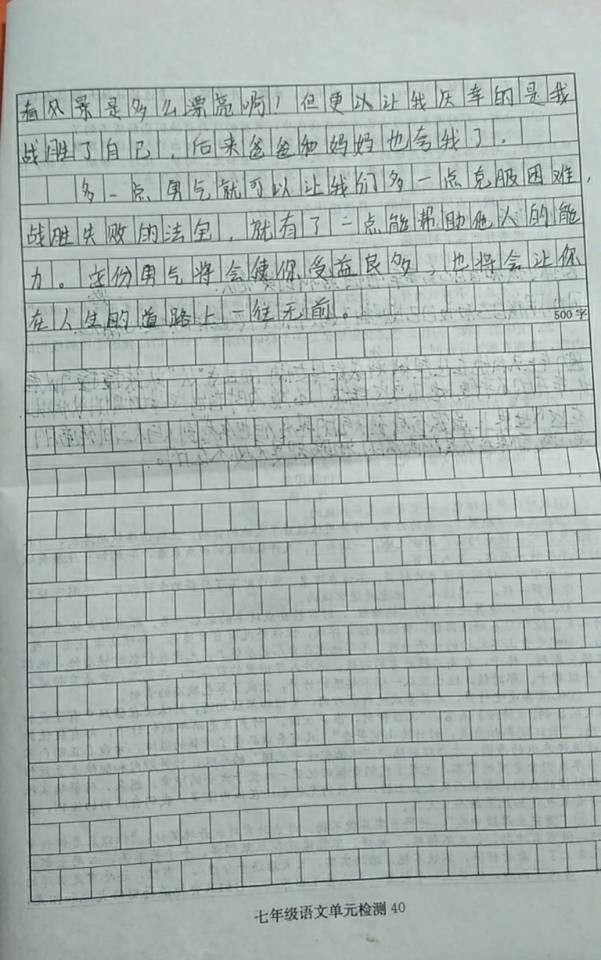 看风景是多么漂亮啊！但更以让我庆幸的是我
战胜了自己，后来爸爸和妈妈也夸我了．
多一点勇气就可以让我们多一点克服困难，
战胜失败的法宝，就有了一点能帮助他人的能
力。这份勇气将会使你受益良多，也将会让你
在人生的道路上一往无前。
500字
七年级语文单元检测 40